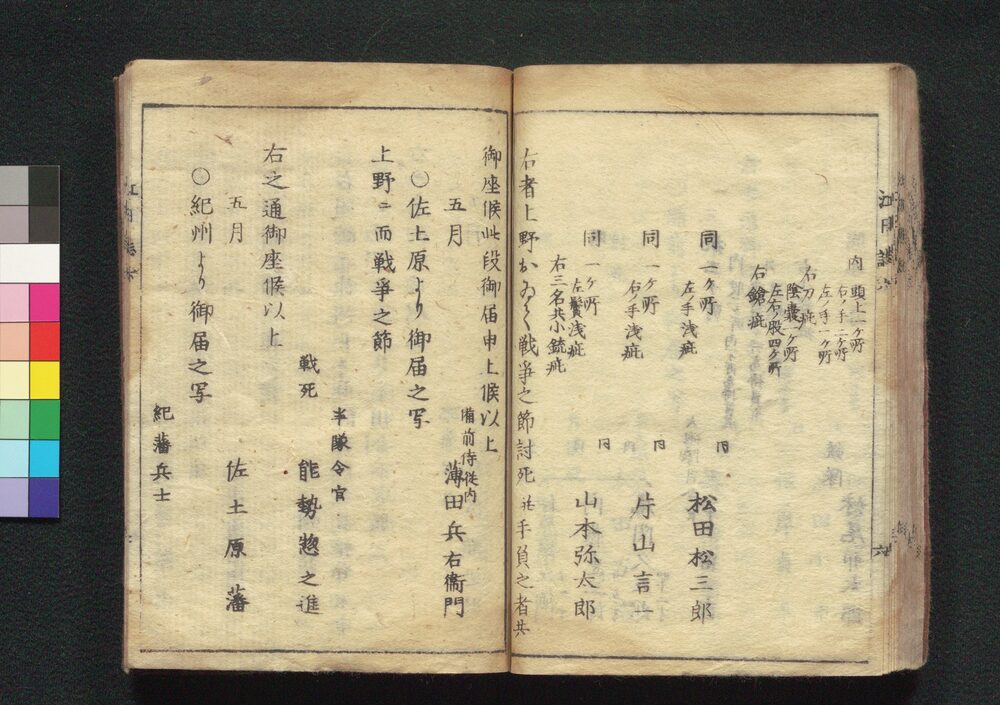 肉頭上一ケ所
右ノ手二ケ所
左ノ手一ケ所
右刀疵
陰嚢一ケ所
左右ノ股四ケ所
右鎗疵
同一ケ所
左手浅疵
同
松田松三郎
同一ケ所
右ノ手浅疵
同
片山言一
同一ケ所
左鬢浅疵
同
山本弥太郎
右三名共小銃疵
右者上野おゐて戦争之節討死並手負之者共
御座候此段御届申上候以上
備前侍従内
五月 薄田兵右衛門
〇佐土原より御届之写
上野ニ而戦争之節
半隊令官
戦死 能勢惣之進
右之通御座候以上
五月 佐土原藩
〇紀州より御届之写
紀藩兵士